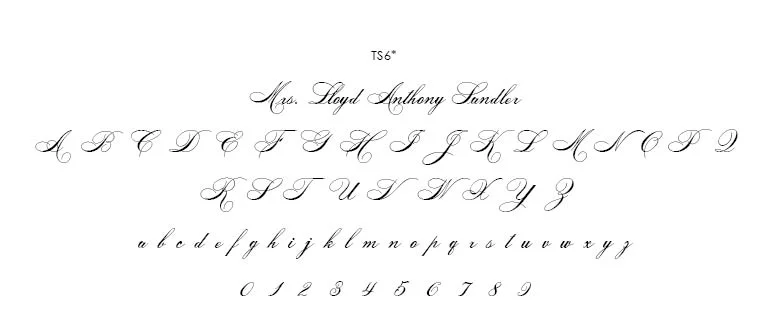 TS6*
Mrs. Lloyd Anthony Sandler
A B C D E F G H I J K L M N O P Q
R S T U V W X Y Z
a b c d e f g h i j k l m n o p q r s t u v w x y z
0 1 2 3 4 5 6 7 8 9